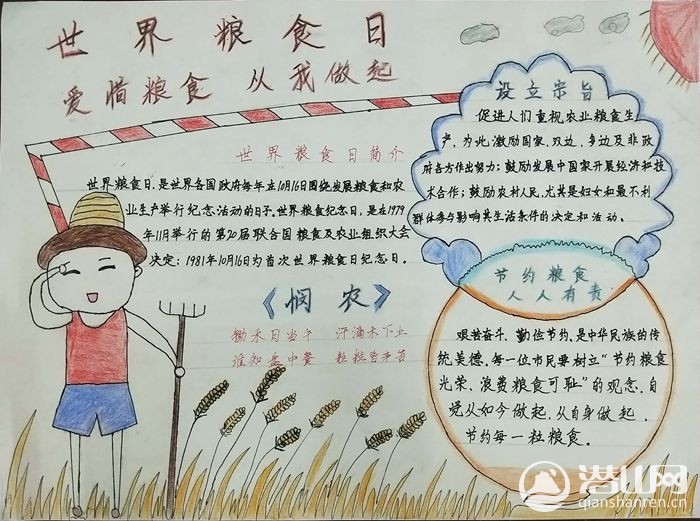 世界粮食日
爱惜粮食 从我做起
世界粮食日简介
世界粮食日,是世界各国政府每年在10月16日围绕发展粮食和农
业生产举行纪念活动的日子。世界粮食纪念日,是在1979
年11月举行的第20届联合国粮食及农业组织大会
决定:1981年10月16日为首次世界粮食日纪念日。
《悯农》
锄禾日当午 汗滴禾下土
谁知盘中餐 粒粒皆辛苦
设立宗旨
促进人们重视农业粮食生
产,为此,激励国家、双边、多边及非政
府各方作出努力;鼓励发展中国家开展经济和技
术合作;鼓励农村人民,尤其是妇女和最不利
群体参与影响其生活条件的决定和活动。
节约粮食
人人有责
艰苦奋斗、勤俭节约,是中华民族的传
统美德。每一位市民要树立“节约粮食
光荣、浪费粮食可耻”的观念,自
觉从如今做起,从自身做起,
节约每一粒粮食。
潜山网
qianshanren.cn